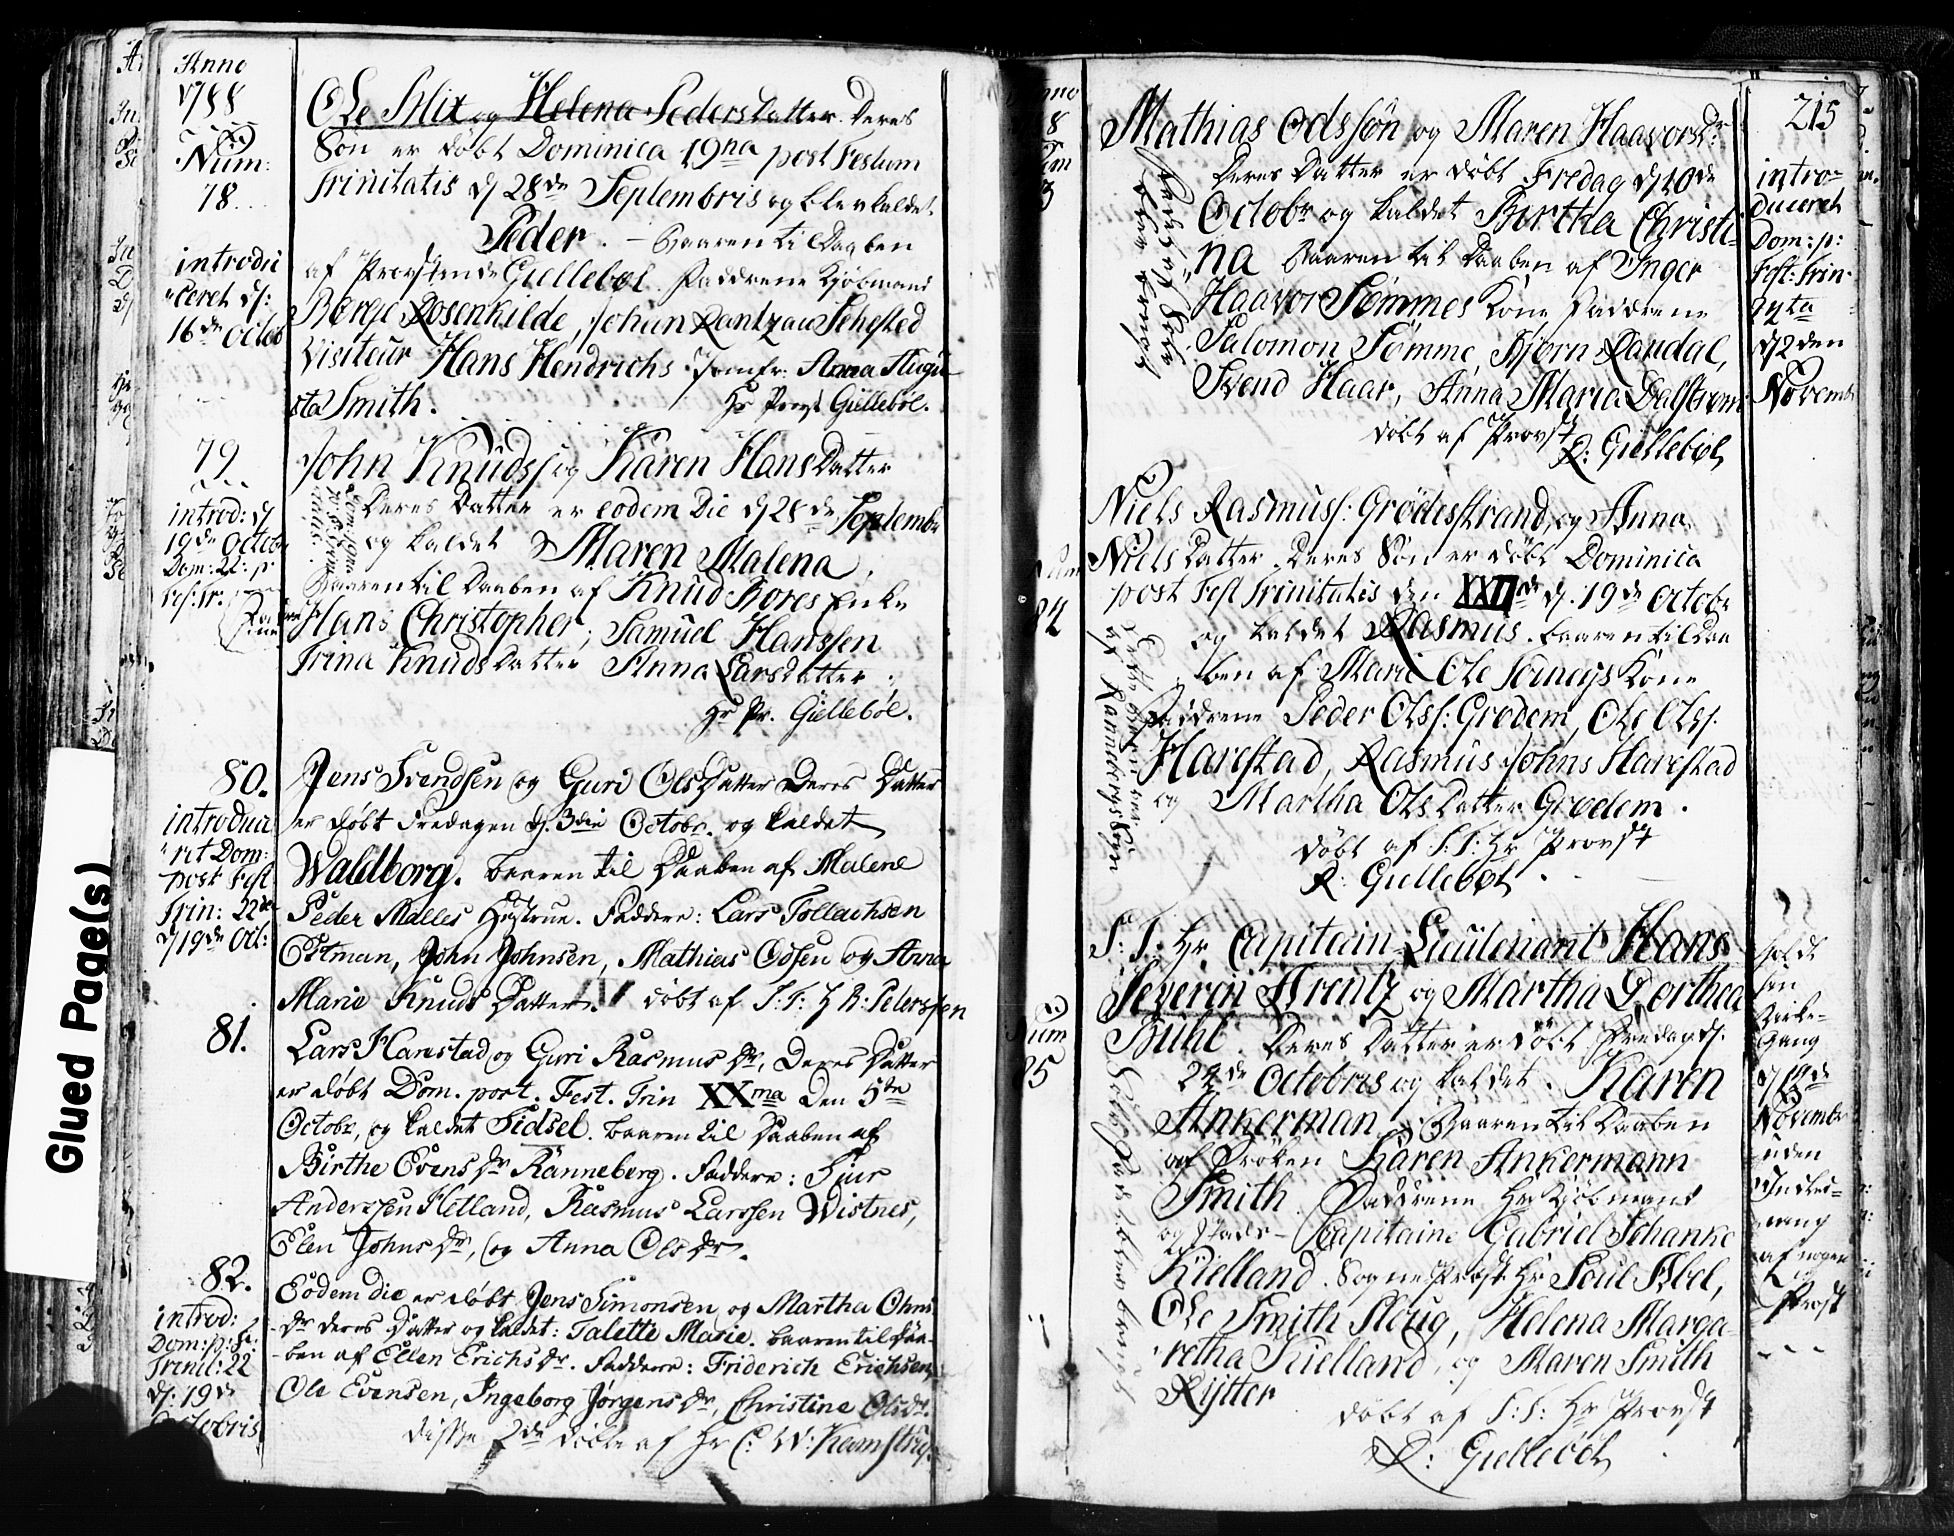 Anno
1788
Num:
78.
introdu
ceret d:
16de Octob
Ole Blix og Helena Pedersdatter Deres
Søn er døbt Dominica 19na post Festum
Trinitatis d 28de Septembris og blev kaldet
Peder. – Baaren til Daaben
af Provstinde Gullebøl. Faddrene Kjøbmand
Børge Rosenkilde, Johan Rantzau Sehested
Visiteur Hans Hendrichs Jomfr: Anna Augu
sta Smith. Hr Provst Güllebøl.
79
introd: d
19de Octobr
Dom: 22: p
Fest: Tr.
John Knudss og Karen Hansdatter
Deres Datter er eodem Die d 28de Septembr
og kaldet Maren Malena,
Baaren til Daaben af Knud Bores Enke
Hans Christopher, Samuel Hanssen
Trina Knudsdatter Anna Larsdatter.
Hr Pr. Güllebøl.
80.
introduce
ret Dom:
post Fest
Trin: 22de
d 19de Oct:
Jens Svendsen og Guri Olsdatter Deres Datter
er døbt Fredagen d. 3die Octobr. og kaldet
Waldborg. baaren til Daaben af Malene
Peder Malles Hustrue. Faddere: Lars Tollachsen
Østman, John Johnsen, Mathias Odsen og Anna
Marie Knuds Datter. døbt af S: T: H R: Peterssen
81.
Lars Harestad og Guri Rasmus Dr, Deres Datter
er døbt Dom. post. Fest. Trin XXma Den 5te
Octobr, og kaldet Sidsel. baaren til Daaben af
Birthe Evens Dr Ranneberg. Faddere: Siur
Anderssen Hetland, Rasmus Larssen Wistnes,
Elen Johns Dr, og Anna Ols Dr.
82.
introd:
Dom: p: Fe:
Trinit: 22
d: 19de
Octobris
Eodem die er døbt Jens Simonsen og Martha Ohms
Dr deres Datter og kaldet: Talette Marie. baaren til Daa-
ben af Ellen Erichs Dr. Faddere: Friderich Erichsen,
Ole Evensen, Ingeborg Jørgens Dr, Christine Olsdr.
disse 2de døbte af Hr C: W: Kamstrup.
215
Mathias Odssøn og Maren Haavorsdr
Deres Datter er døbt Fredag d 10de
Octobr og kaldet Birtha Christi-
na Baaren til Daaben af Inger
Haavor Sømmes Kone Faddrene
Salomon Sømme, Bjørn Randal,
Svend Haar, Anna Maria Dalstrøm
døbt af Provst
R: Güllebøl
intro-
duceret
Dom: p:
Fest: Trin:
24ta
d 2den
Novembr
84
Niels Rasmuss: Grødesstrand, og Anna
Nielsdatter Deres Søn er døbt Dominica
post Fest Trinitatis den XXIIde d. 19de Octobr
og kaldet Rasmus. baaren til Daa
ben af Mari Ole Kone
Faddrene Peder Olss: Grødem, Ole Olss.
Harestad, Rasmus Johns Harestad
og Martha Olsdatter Grødem.
døbt af S: T: Hr Provst
R: Gullebøl.
Num
85
S: T: Hr Capitain Lieutenant Hans
Severin Arentz og Martha Dorthea
Buhl. Deres Datter er døbt Fredag d:
24de Octobris og kaldet. Karen
Ankerman, Baaren til Daaben
af Frøken Karen Ankermann
Smith. Faddrene Hr Kjøbmand
og Stads-Capitaine Gabriel Schanke
Kielland. Sogne Præst Hr Poul Abel,
Ole Smith Ploug, Helena Marga-
retha Kielland, og Maren Smith
Rijtter døbt af S: T: Hr Provst
R: Gullebøl
holdt
sin
Kirke-
Gang
Novembr
uden
Indled-
ning
af nogen
Præst
Glued Page(s)